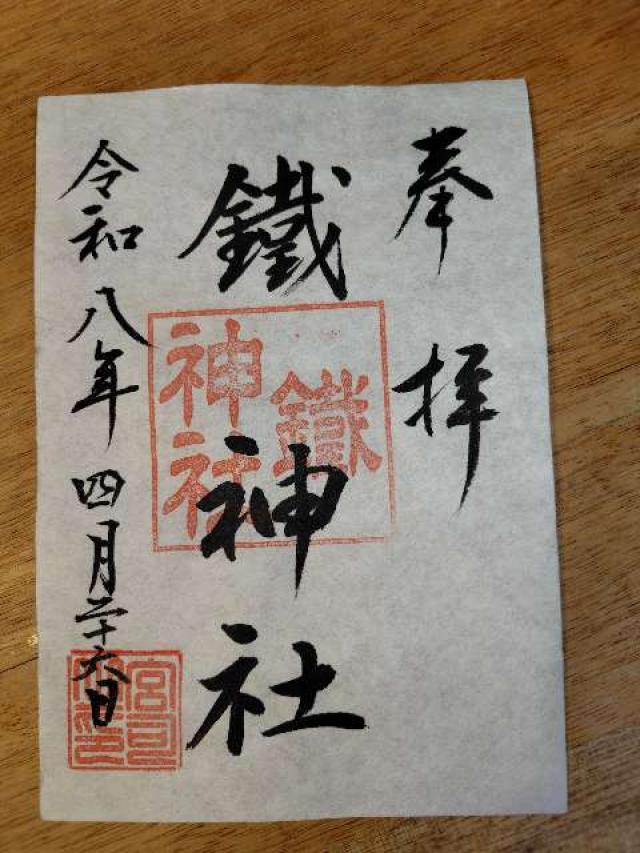 奉拝
鐵神社
鐵
神社
令和八年四月二十六日
宮司
之印